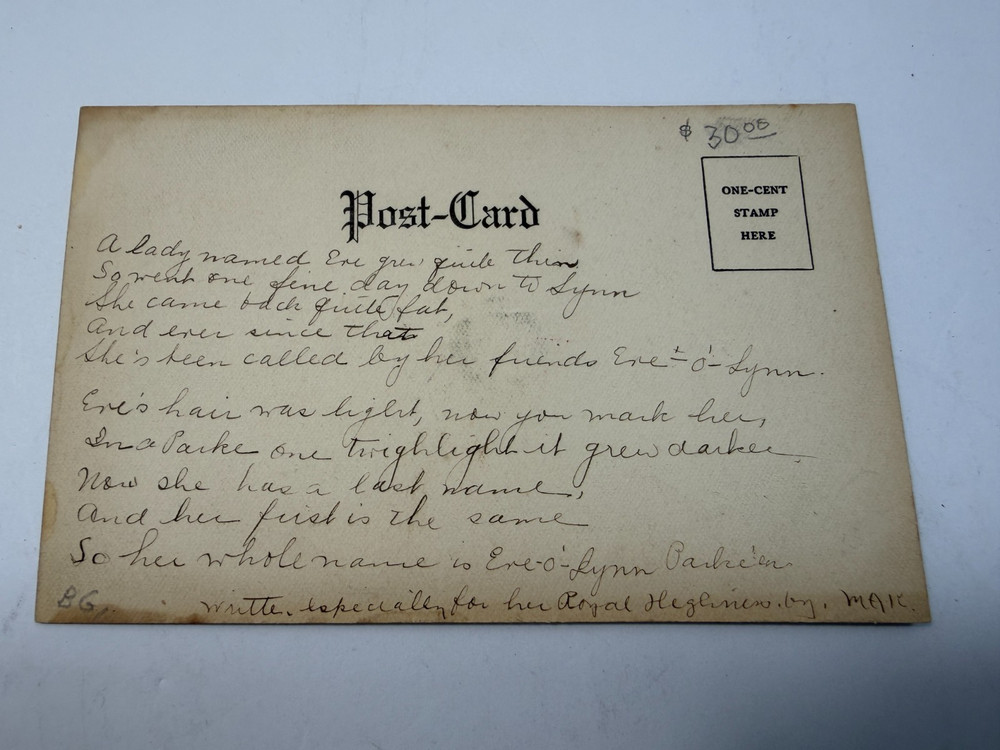 $ 30 00
ONE-CENT
STAMP
HERE
Post-Card
A lady named Eve grew quite thin
So went one fine day down to Lynn
She came back quite fat,
And ever since that
She's been called by her friends Eve-'o'-Lynn.
Eve's hair was light, now you mark her,
In a Parke one twighlight it grew darker.
Now she has a last name,
And her first is the same
So her whole name is Eve-o'-Lynn Parke'er
BG.
Writte. especially for her Royal Heghness. by. MAK.